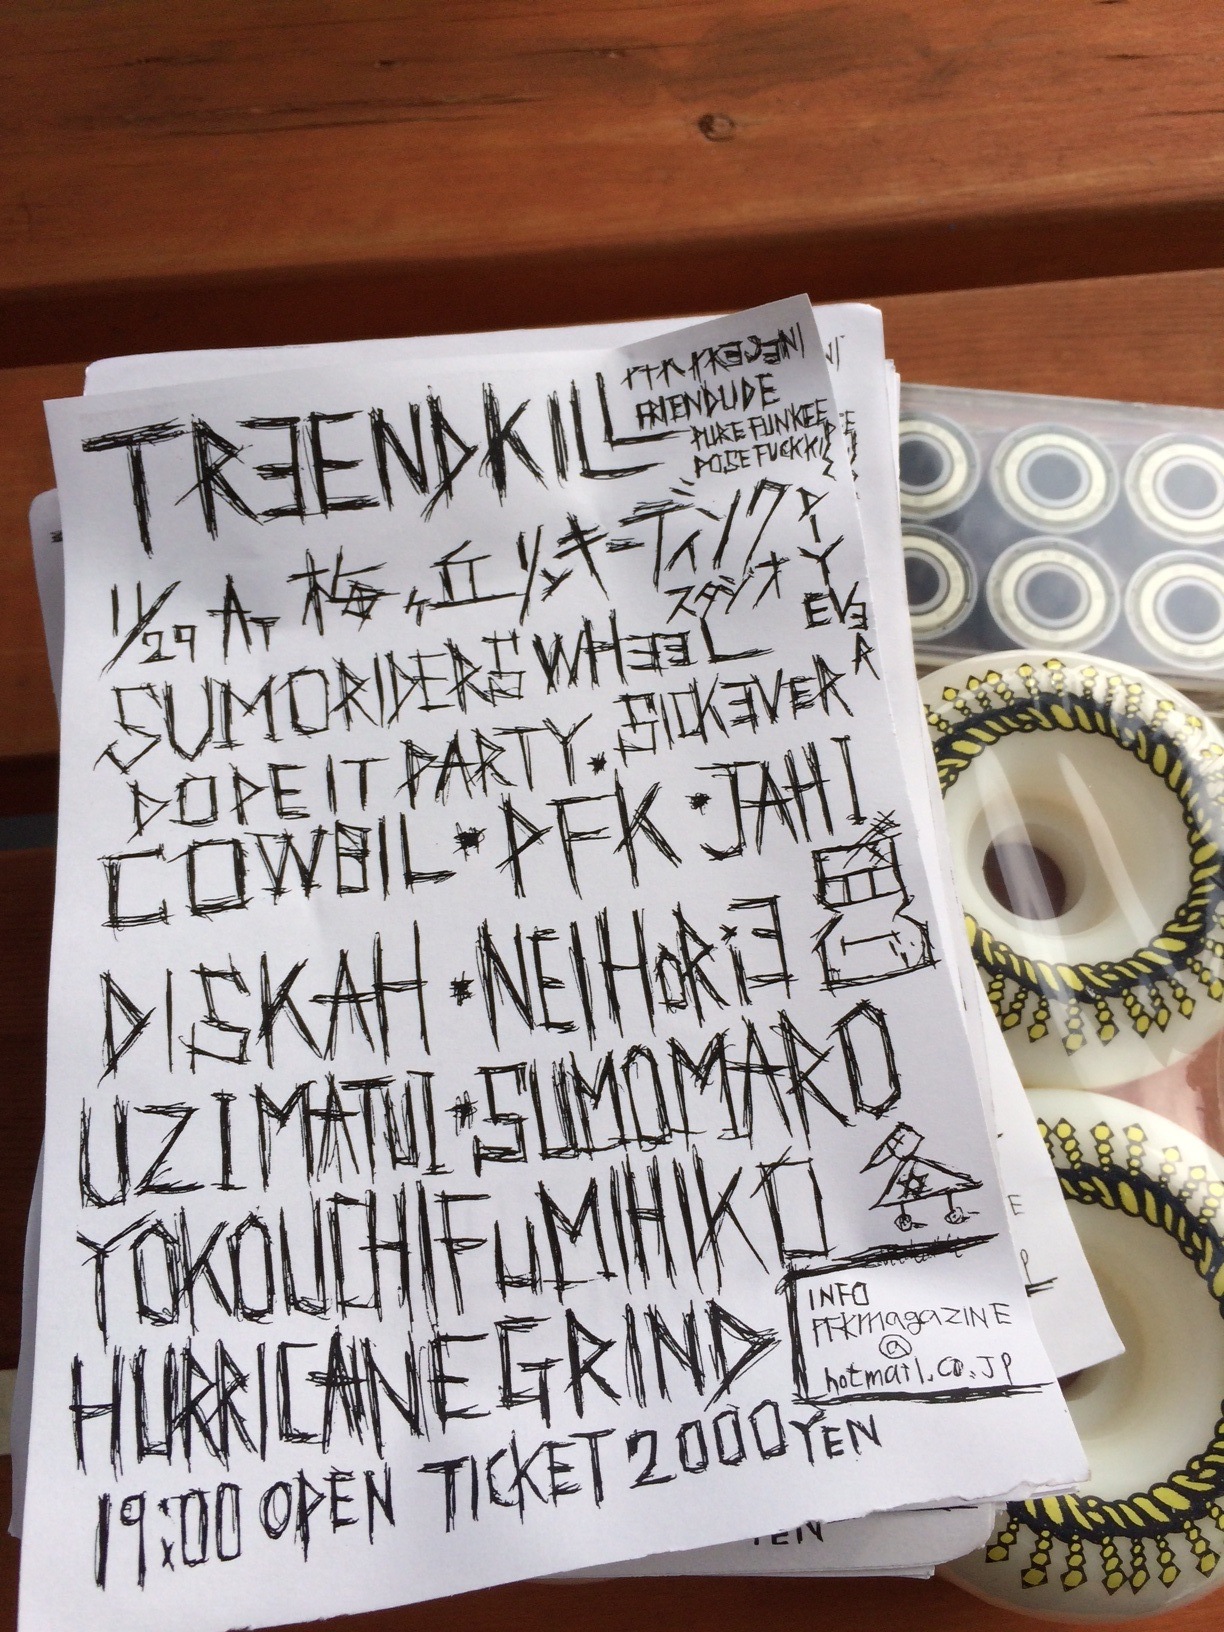 TREENDKILL
FRIENDUDE
PURE FUNKEE
POSE FUCK
11/29 AT 梅ヶ丘リンキーディンク
スタジオ
DIY
EVER
SUMORIDERS WHEEL
DOPE IT PARTY・SICKEVER
COWBIL・PFK・JAHI
DISKAH・NEIHORiE
UZIMATUI・SUMOMARO
YOKOUCHIFuMIHIKO
HURRICANE GRIND
INFO
PFKmagaZINE
@
hotmail.co.JP
19:00 OPEN TICKET 2000YEN
YEN